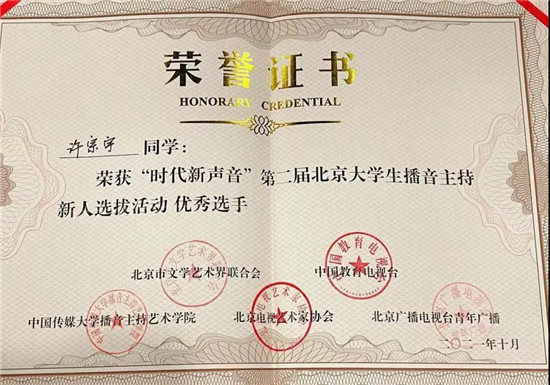 荣誉证书
HONORARY CREDENTIAL
许宗宇 同学：
荣获“时代新声音”第二届北京大学生播音主持
新人选拔活动 优秀选手
北京市文学艺术界联合会 中国教育电视台
中国传媒大学播音主持艺术学院 北京电视艺术家协会 北京广播电视台青年广播
二〇二一年十月